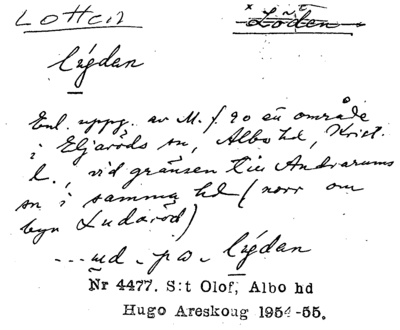 Lotten
Loden
lýdan
Enl. uppg. av M. f. 90 en område
i Eljaröds sn, Albo hd, Krist.
l., vid gränsen till Andrarums
sn i samma hd (norr om
byn Ludaröd)
...ud - pa - lýdan
Nr 4477. S:t Olof, Albo hd
Hugo Areskoug 1954-55.